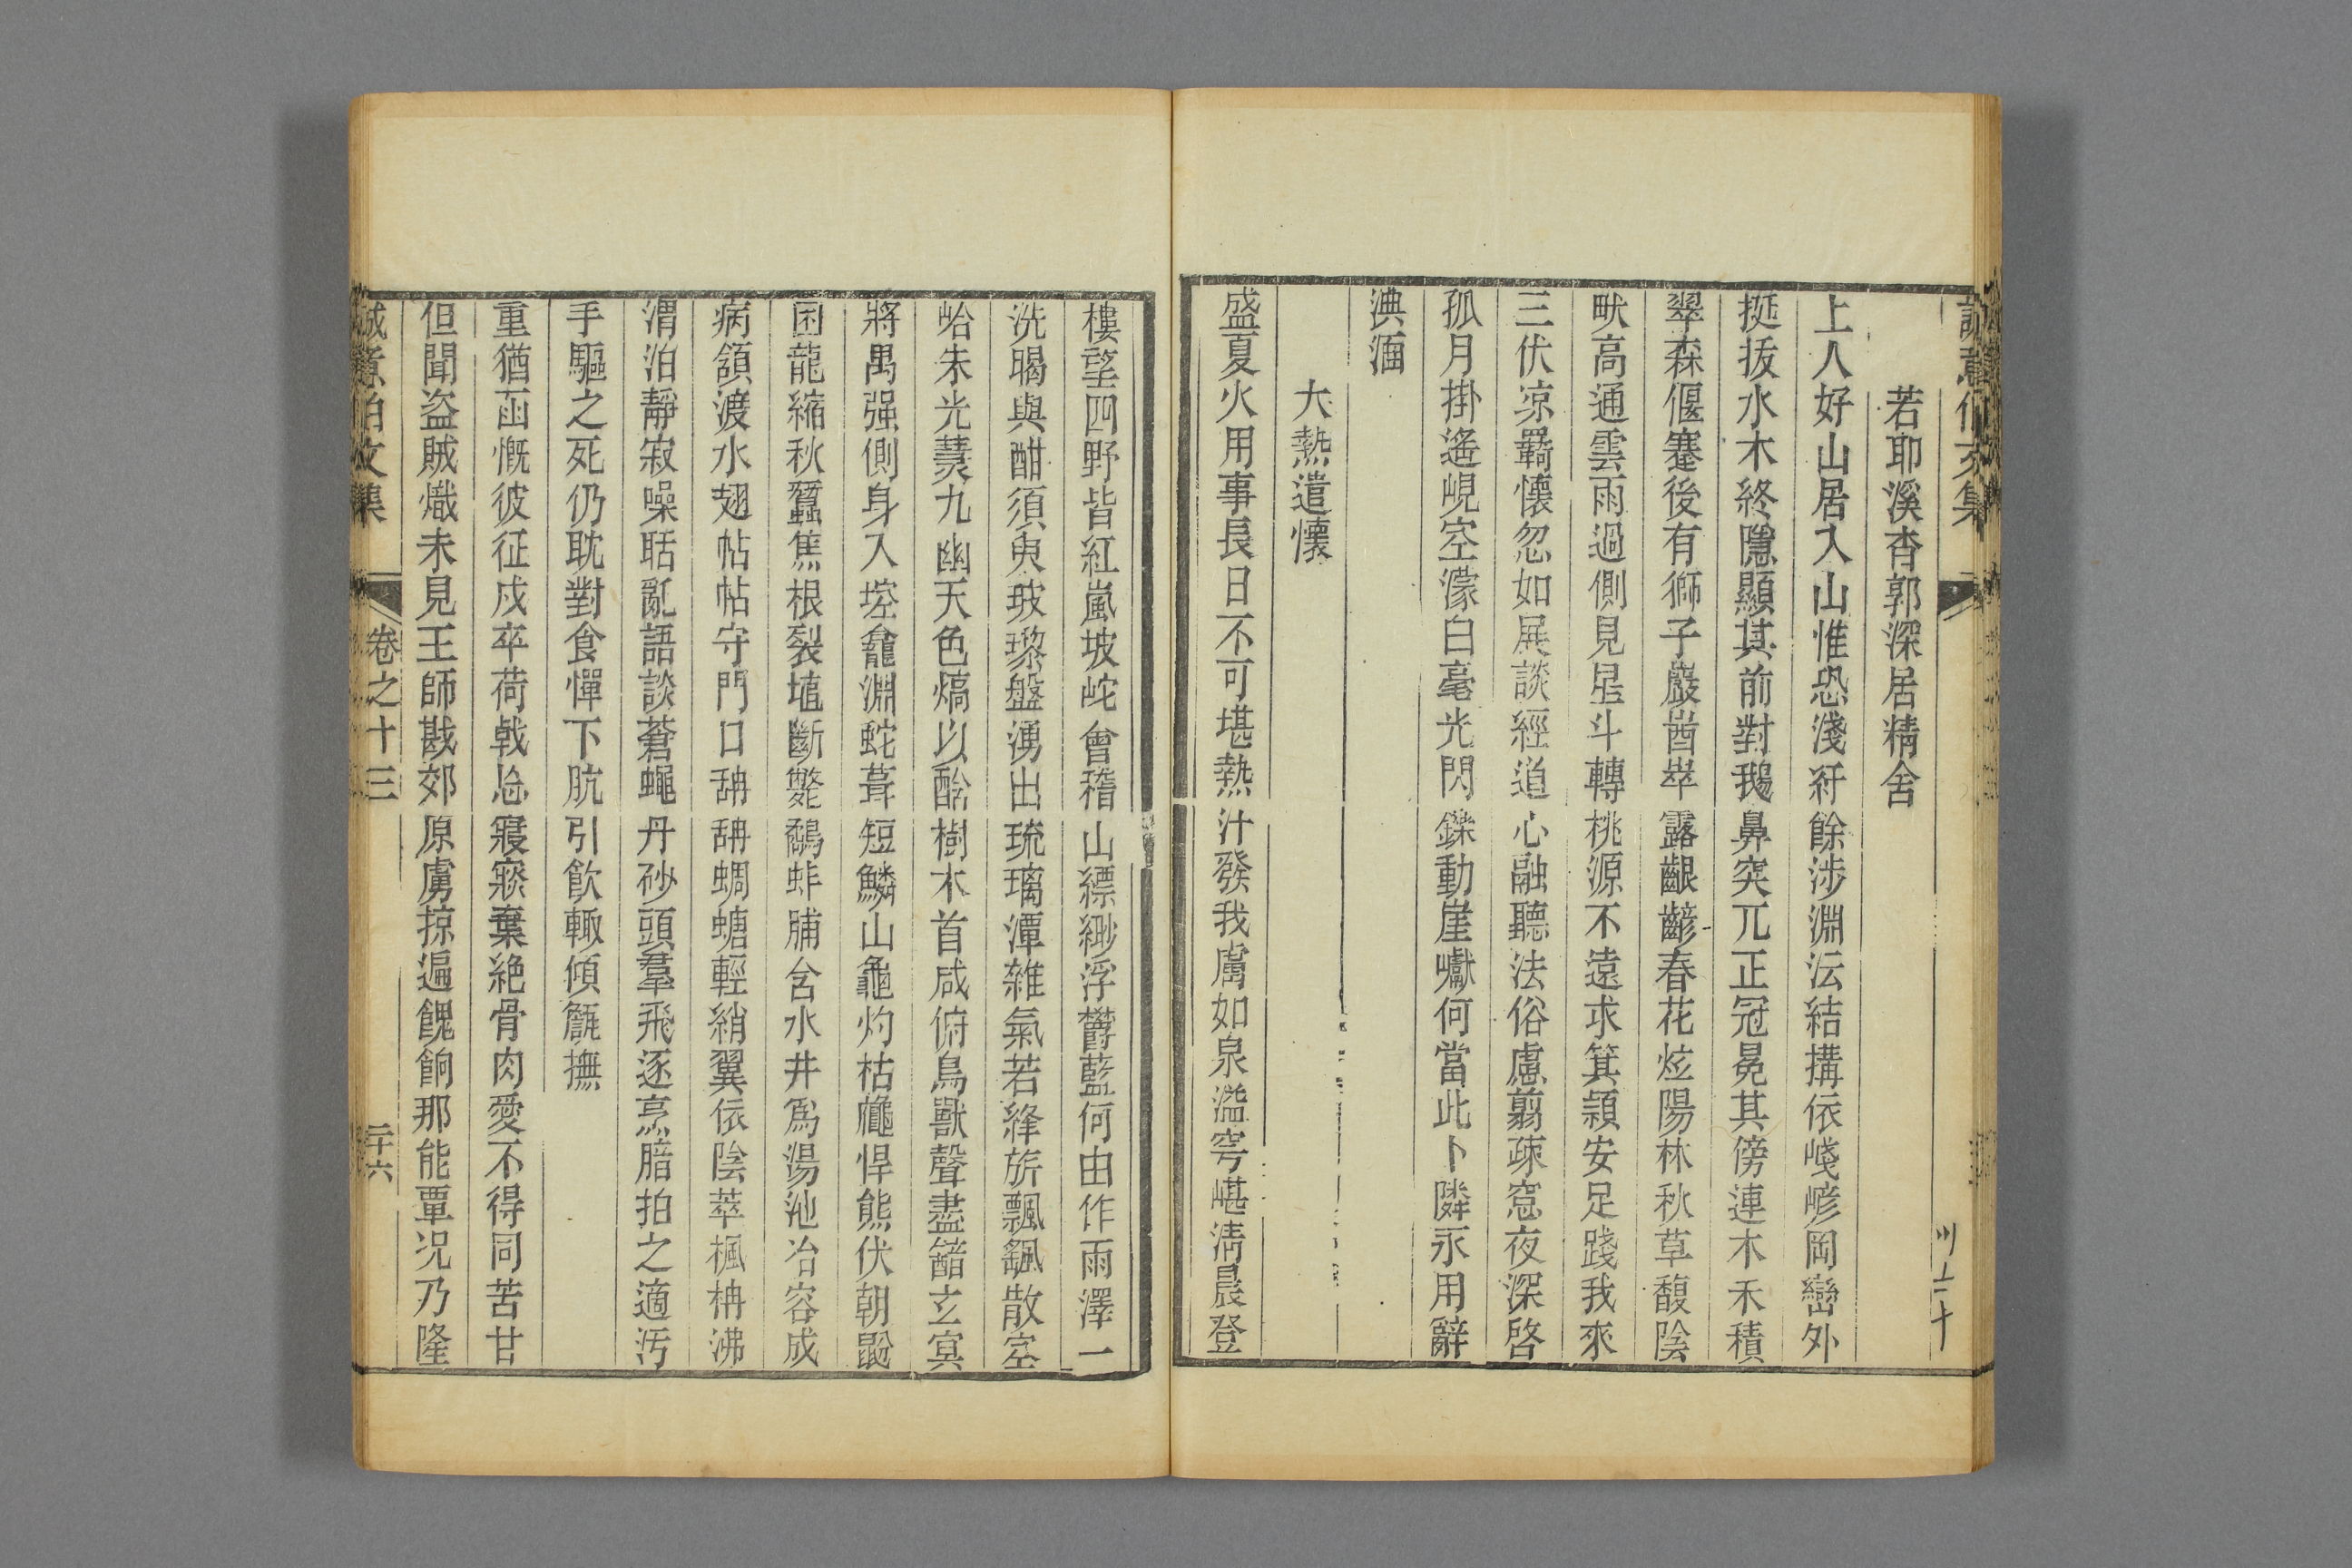 誠意伯文集
若耶溪杳郭深居精舍
上人好山居入山惟恐淺冴餘涉淵沄結搆依嶘嵃岡巒外
挺拔水木終隱顯其前對鵝鼻突兀正冠冕其傍連木禾積
翠森偃蹇後有獅子巖崷崒露齦齴春花炫陽林秋草馥陰
畎高通雲雨過側見星斗轉桃源不遠求箕潁安足踐我來
三伏凉羇懷忽如展談經道心融聽法俗慮翦疎窓夜深啓
孤月掛遙峴空濛白毫光閃鑠動崖巘何當此卜隣永用辭
淟涊
大熱遣懷
盛夏火用事長日不可堪熱汁發我膚如泉溢穹嵁淸晨登
樓望四野皆紅嵐坡岮會稽山縹緲浮欝藍何由作雨澤一
洗暍與酣須臾玻瓈盤湧出琉璃潭雜氣若絳旂飄颻散空
蛤朱光燾九幽天色熇以酓樹木首咸俯鳥獸聲盡䛳玄冥
將禺强側身入埪龕淵蛇葺短鱗山龜灼枯龝悍熊伏朝鼢
困龍縮秋蠶焦根裂埴斷斃鷸蚌脯含水井爲湯池冶容成
病頷渡水翅帖帖守門口䑙䑙蜩螗輕綃翼依陰萃楓枏沸
渭泊靜寂噪聒亂語談蒼蠅丹砂頭羣飛逐烹腤拍之適汚
手驅之死仍耽對食憚下肮引飮輙傾甔撫
重猶函慨彼征戍卒荷戟怂寢㝥棄絶骨肉愛不得同苦甘
但聞盜賊熾未見王師戡郊原虜掠遍餽餉那能覃况乃隆
誠意伯文集 卷之十三 二十六